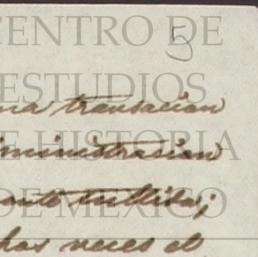 CENTRO DE
5
ESTUDIOS
ma transacion
DE HISTORIA
ministrasion
DE MEXICO
ante
has veces el